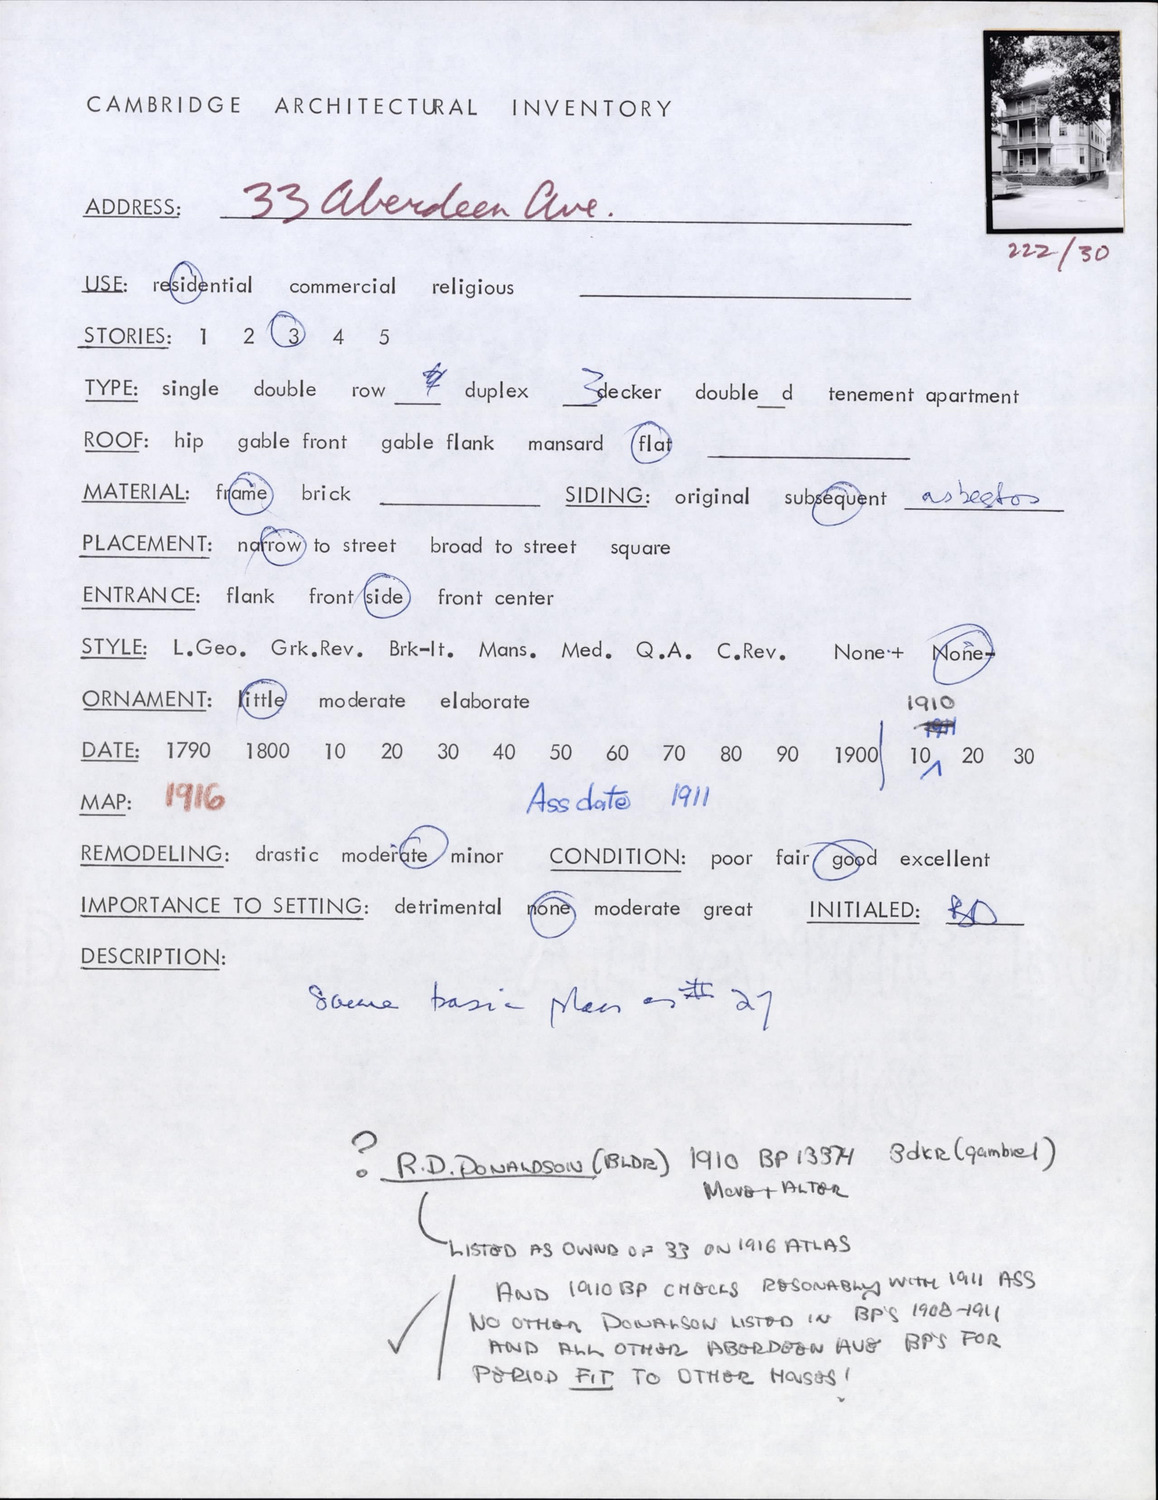 CAMBRIDGE ARCHITECTURAL INVENTORY
ADDRESS: 33 Aberdeen Ave.
222/30
USE: residential commercial religious
STORIES: 1 2 3 4 5
TYPE: single double row duplex 3 decker double d tenement apartment
ROOF: hip gable front gable flank mansard flat
MATERIAL: frame brick SIDING: original subsequent asbestos
PLACEMENT: narrow to street broad to street square
ENTRANCE: flank front side front center
STYLE: L.Geo. Grk.Rev. Brk-It. Mans. Med. Q.A. C.Rev. None+ None-
ORNAMENT: little moderate elaborate
1910
1911
DATE: 1790 1800 10 20 30 40 50 60 70 80 90 1900 10 20 30
MAP: 1916 Ass date 1911
REMODELING: drastic moderate minor CONDITION: poor fair good excellent
IMPORTANCE TO SETTING: detrimental none moderate great INITIALED:
DESCRIPTION:
Same basic plan as # 27
? R.D. DONALDSON (BLDR) 1910 BP 13374 3dkR (gambrel)
MOVE + ALTER
LISTED AS OWND OF 33 ON 1916 ATLAS
AND 1910 BP CHECKS RESONABLY WITH 1911 ASS
NO OTHER DONALSON LISTED IN BP'S 1908-1911
AND ALL OTHER ABERDEEN AVE BP'S FOR
PERIOD FIT TO OTHER HOUSES!